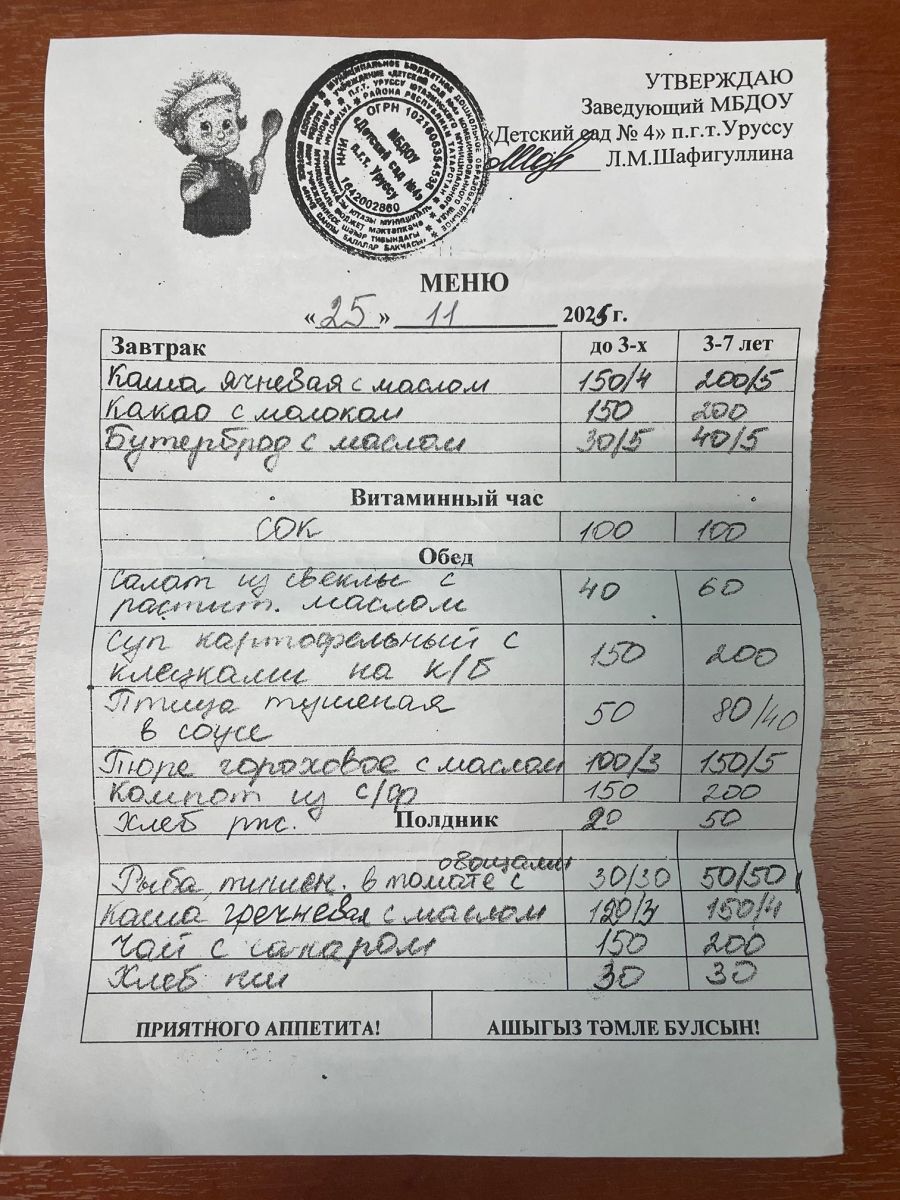 УТВЕРЖДАЮ
Заведующий МБДОУ
«Детский сад № 4» п.г.т.Уруссу
Л.М.Шафигуллина
ОГРН 1021606354538
МБДОУ
«Детский сад №4»
п.г.т. Уруссу
ИНН 1642002860
МЕНЮ
«25» 11 2025 г.
Завтрак до 3-х 3-7 лет
Каша ячневая с маслом 150/4 200/5
Какао с молоком 150 200
Бутерброд с маслом 30/5 40/5
Витаминный час
СОК 100 100
Обед
Салат из свеклы с 40 60
растит. маслом
Суп картофельный с 150 200
клецками на к/б
Птица тушеная 50 80/40
в соусе
Пюре гороховое с маслом 100/3 150/5
Компот из с/ф 150 200
Хлеб рж. Полдник 20 50
овощами
Рыба, тушен. в томате с 30/30 50/50
Каша гречневая с маслом 120/3 150/4
Чай с сахаром 150 200
Хлеб пш 30 30
ПРИЯТНОГО АППЕТИТА! АШЫГЫЗ ТӘМЛЕ БУЛСЫН!